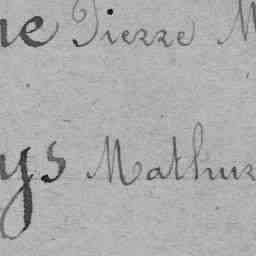 ne Pierre M
ys Mathur